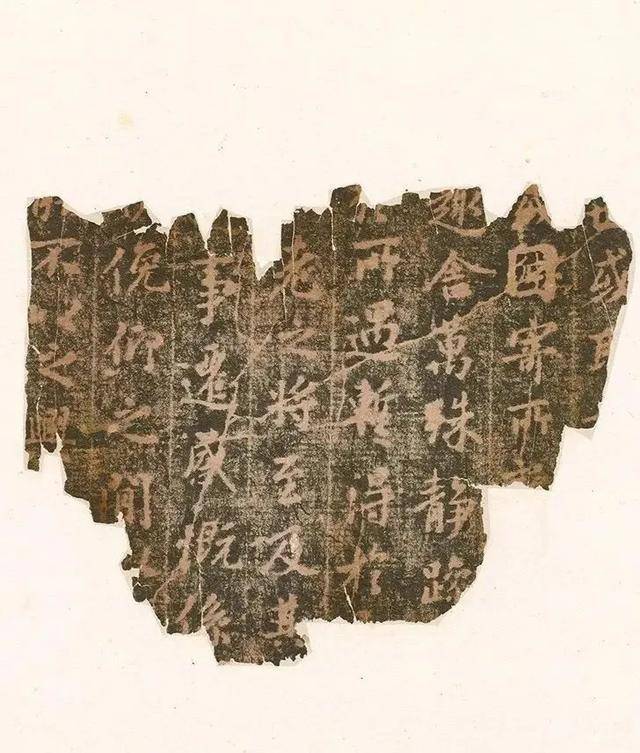 或取
因寄所
趣舍萬殊靜躁
所遇暫得於
老之將至及其
事遷感慨係
俛仰之間以
不以之興